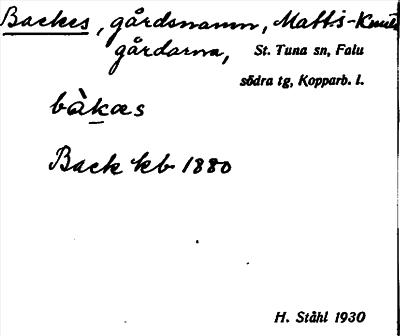 Backes, gårdsnamn, Matts-Knuts
gårdarna, St. Tuna sn, Falu
södra tg, Kopparb. l.
bàkæs
Back kb 1880
H. Ståhl 1930